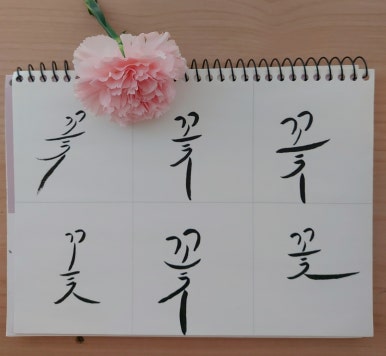 꽃 꽃 꽃
꽃 꽃 꽃